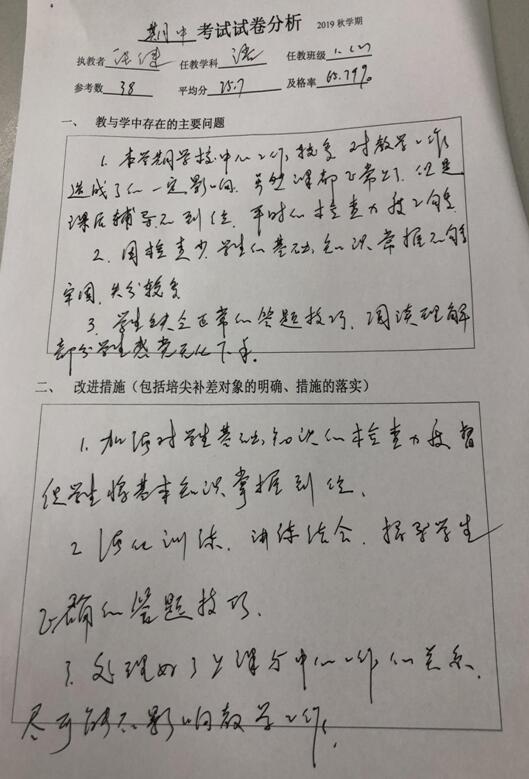 期中 考试试卷分析 2019 秋学期
执教者 任教学科 语 任教班级
参考数 38 平均分 75.7 及格率 65.79%
一、 教与学中存在的主要问题
1. 本学期学校中心工作较多 对教学工作
造成了一定影响. 虽然课都正常上了. 但是
课后辅导不到位. 平时的检查力度不够.
2. 因检查少 学生的基础知识掌握不够
牢固. 失分较多
3. 学生缺乏正常的答题技巧. 阅读理解
部分学生感觉无从下手.
二、 改进措施（包括培尖补差对象的明确、措施的落实）
1. 加强对学生基础知识的检查力度 督
促学生将基本知识掌握到位.
2 强化训练. 讲练结合. 指导学生
正确的答题技巧.
3. 处理好了上课与中心工作的关系.
尽可能不影响教学工作.